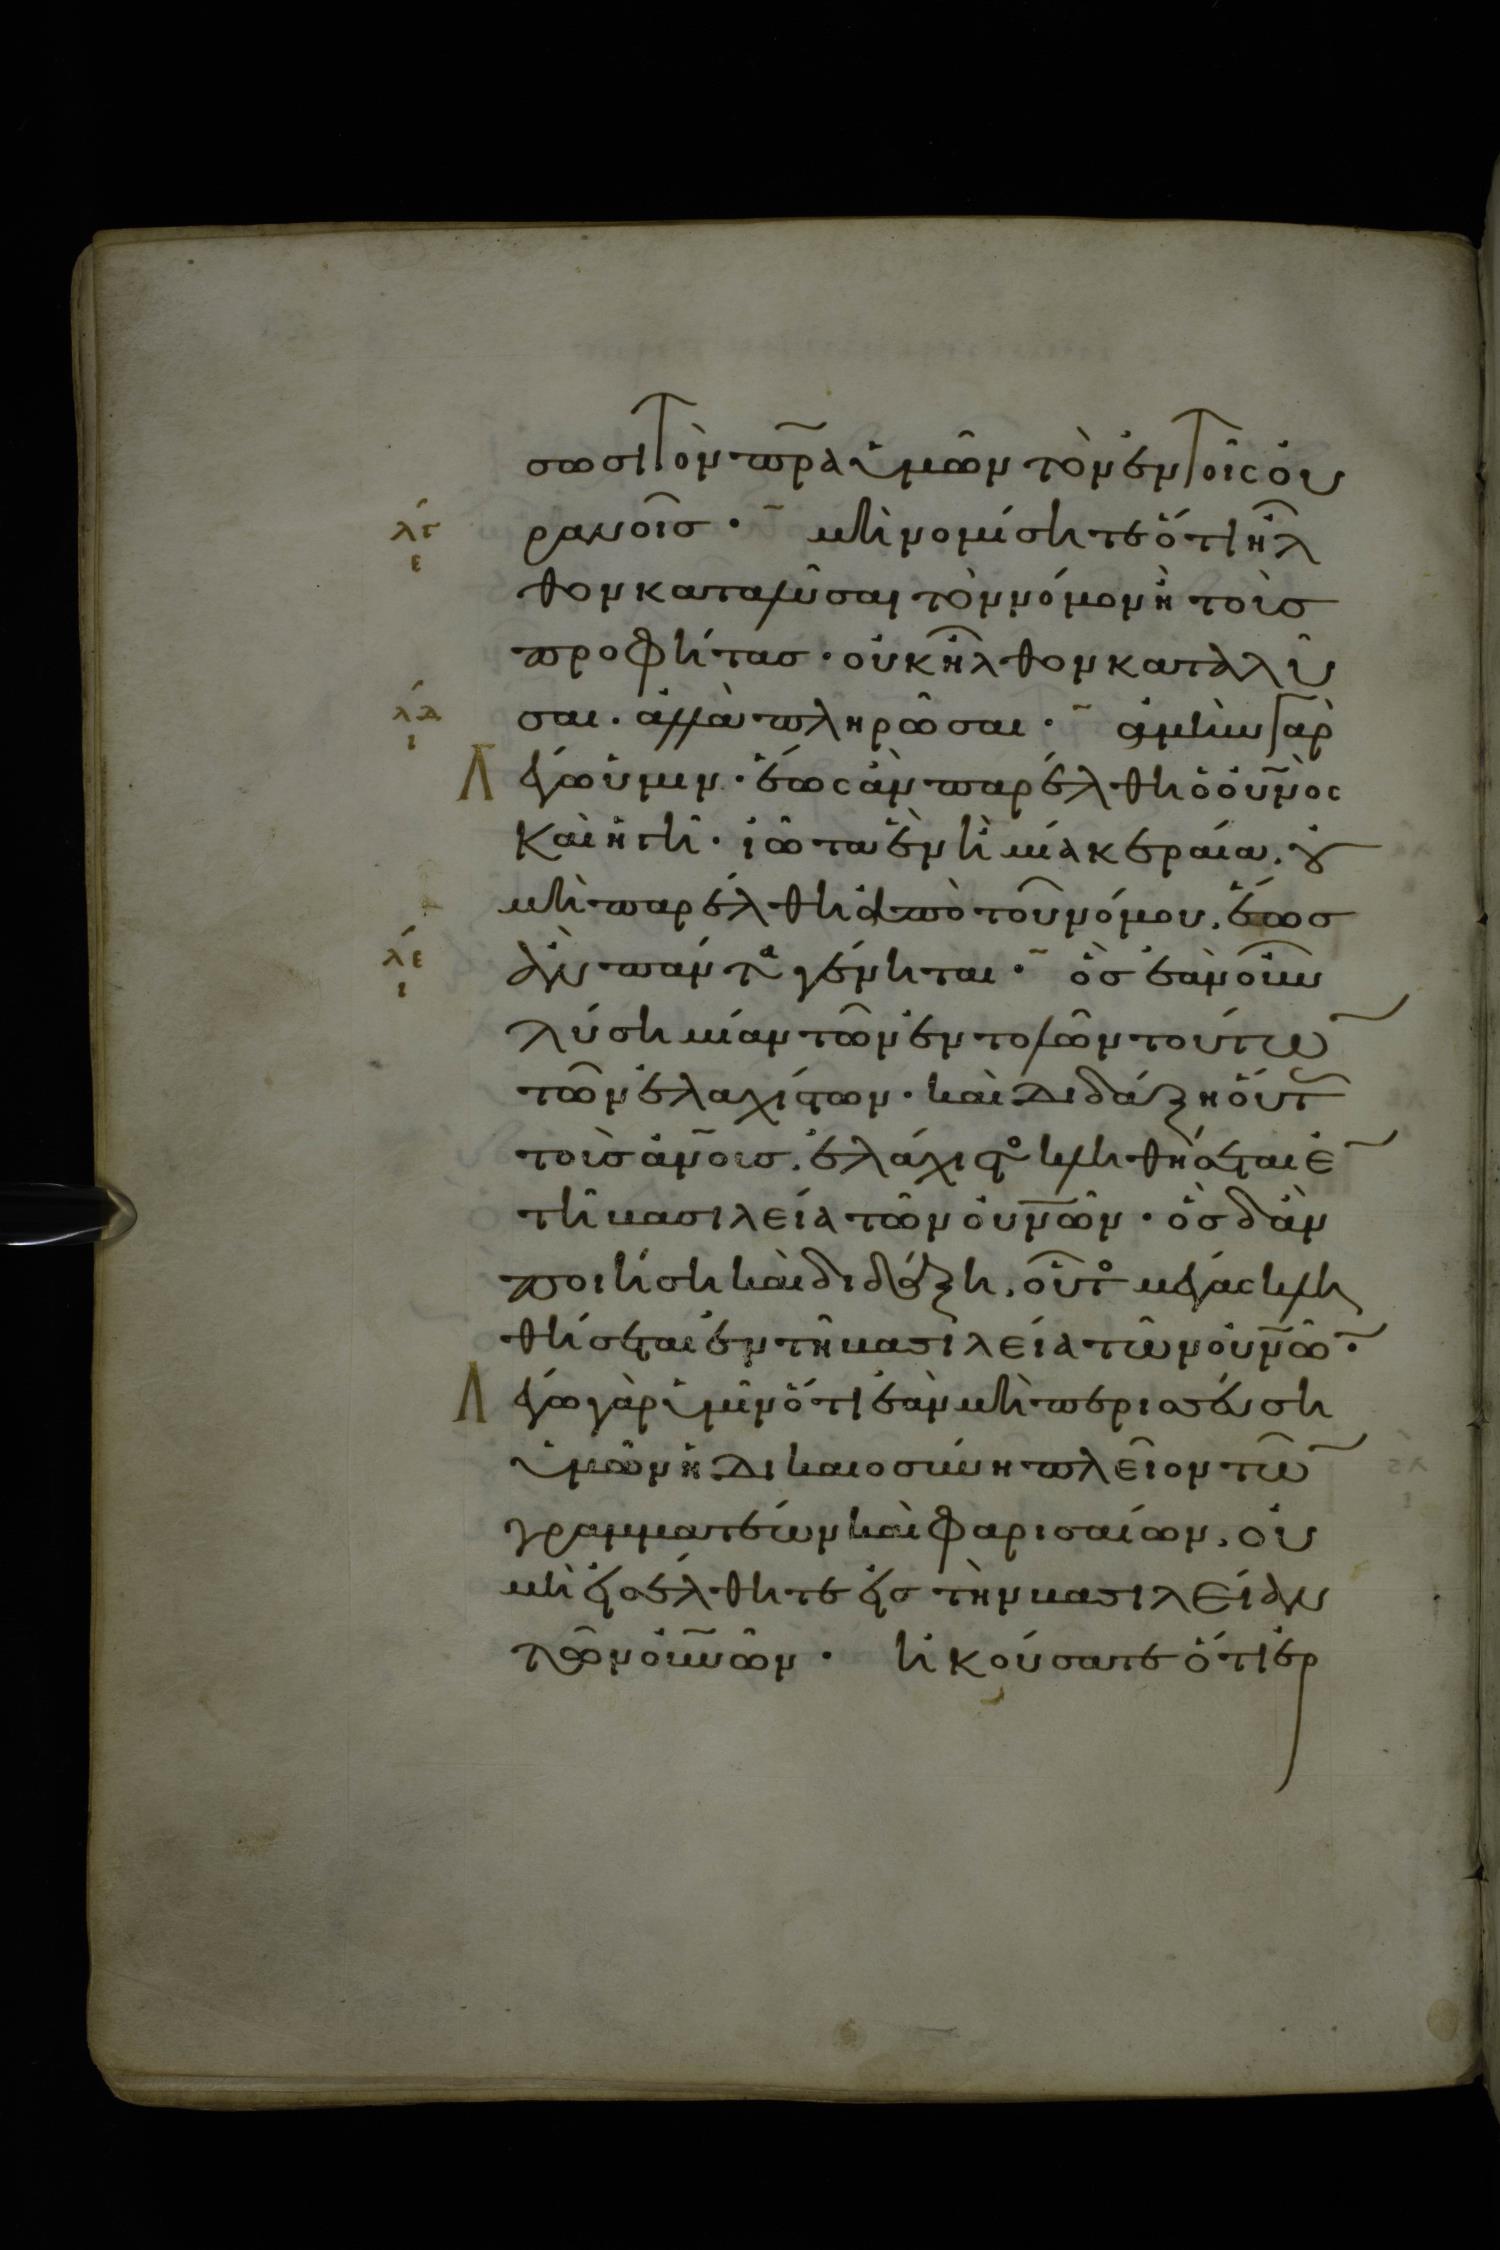 σωσι τὸν πρ̅α ὑμῶν τὸν ἐν τοῖς οὐ
λγ́ ρανοῖσ · μὴ νομίσητε ὅτι ἦλ
ε
θον καταλῦσαι τὸν νόμον ἢ τοὺσ
προφήτασ · οὐκ ἦλθον καταλῦ
λδ́ σαι . ἀλλὰ πληρῶσαι · ἀμὴν γὰρ
ι
Λέγω ὑμῖν · ἕως ἂν παρέλθη ὁ οὐν̅ὸς
καὶ ἡ γῆ · ἰῶτα ἓν ἢ μία κεραία . οὐ
μὴ παρέλθη ἀπὸ τοῦ νόμου . ἕωσ
λέ ἂν πάντα γένηται · ὃσ ἐὰν οὖν
ι
λύση μίαν τῶν ἐντολῶν τούτω̅
τῶν ἐλαχίστων · καὶ διδάξη οὕτ
τοὺσ ἀν̅ουσ . ἐλάχιστο κληθήσεται ἐ̅
τῆ βασιλεία τῶν οὐν̅ῶν · ὃσ δ ἂν
ποιήση καὶ διδάξη . οὗτο μέγας κλη
θήσεται ἐν τῆ βασιλεία τῶν οὐν̅ῶ̅ ·
Λέγω γὰρ ὑμῖν ὅτι ἐὰν μὴ περισσεύση
ὑμῶν ἡ δικαιοσύνη πλεῖον τῶ̅
γραμματέων καὶ φαρισαίων . οὐ
μὴ εἰσέλθητε εἰσ τὴν βασιλείαν
τῶν οὐν̅ῶν · ἠκούσατε ὅτι ἐρ